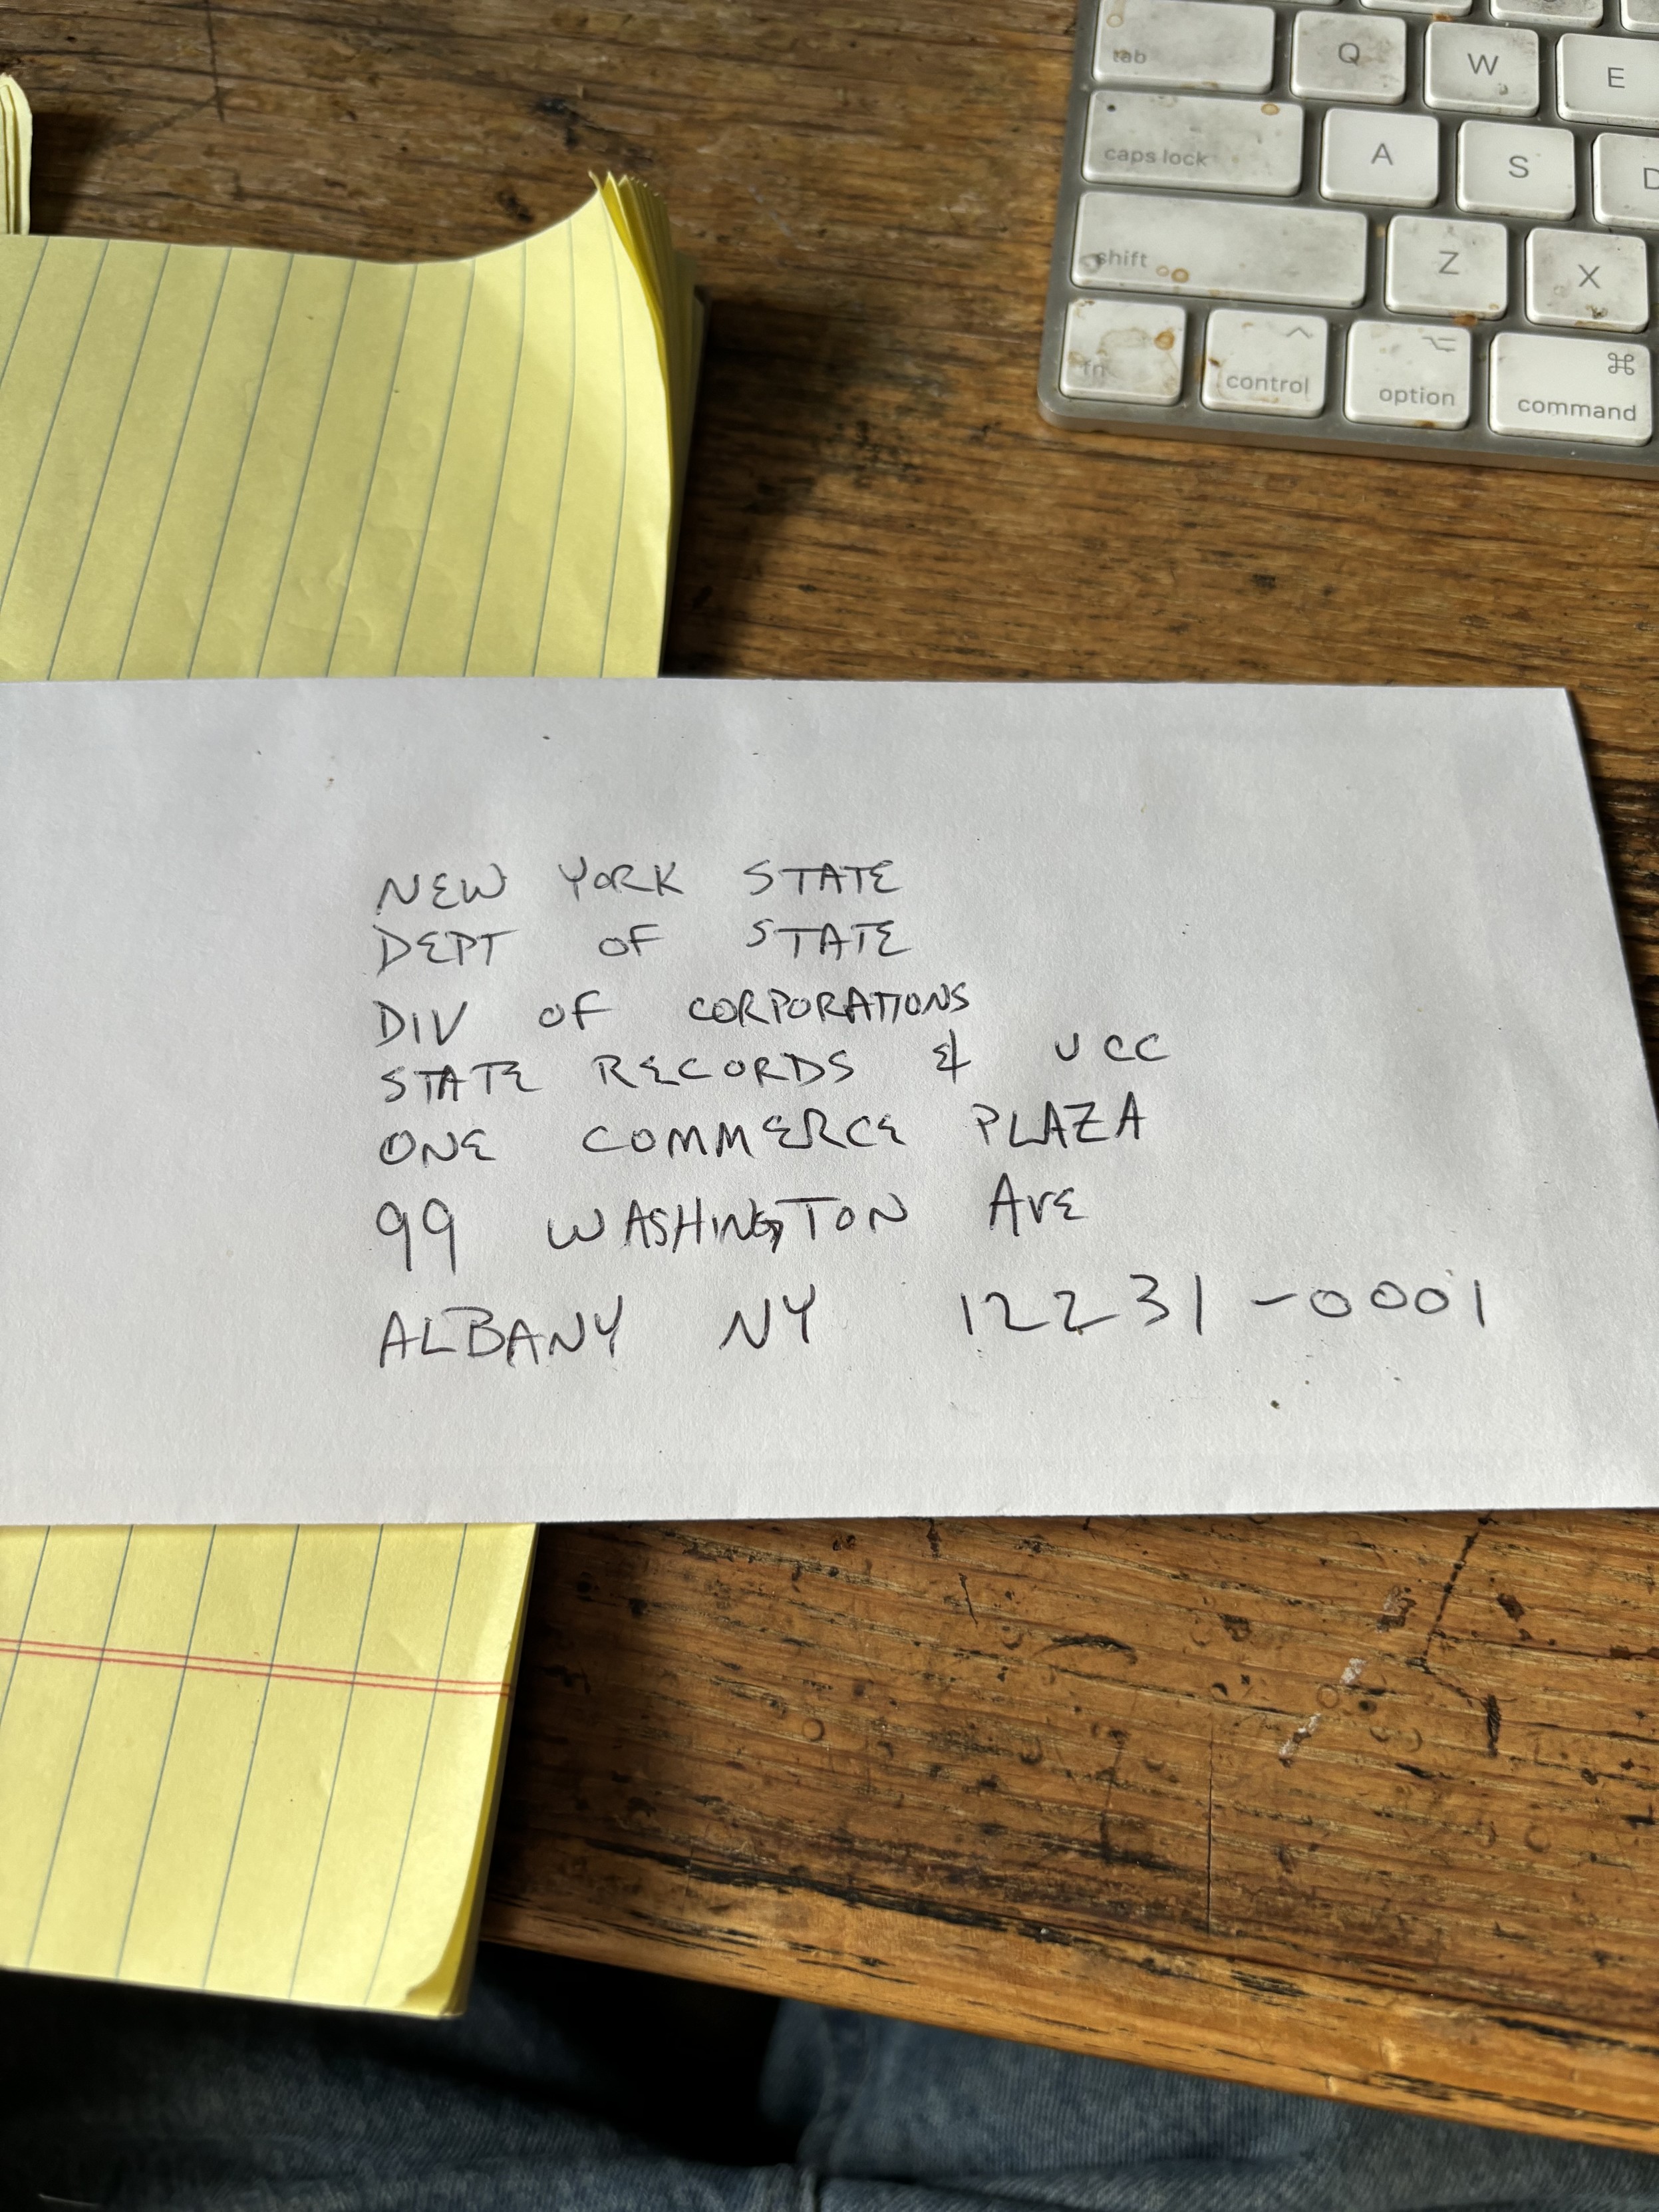 tab Q W E
caps lock A S D
shift Z X
fn control option command
⌃ ⌥ ⌘
NEW YORK STATE
DEPT OF STATE
DIV OF CORPORATIONS
STATE RECORDS & UCC
ONE COMMERCE PLAZA
99 WASHINGTON AVE
ALBANY NY 12231-0001